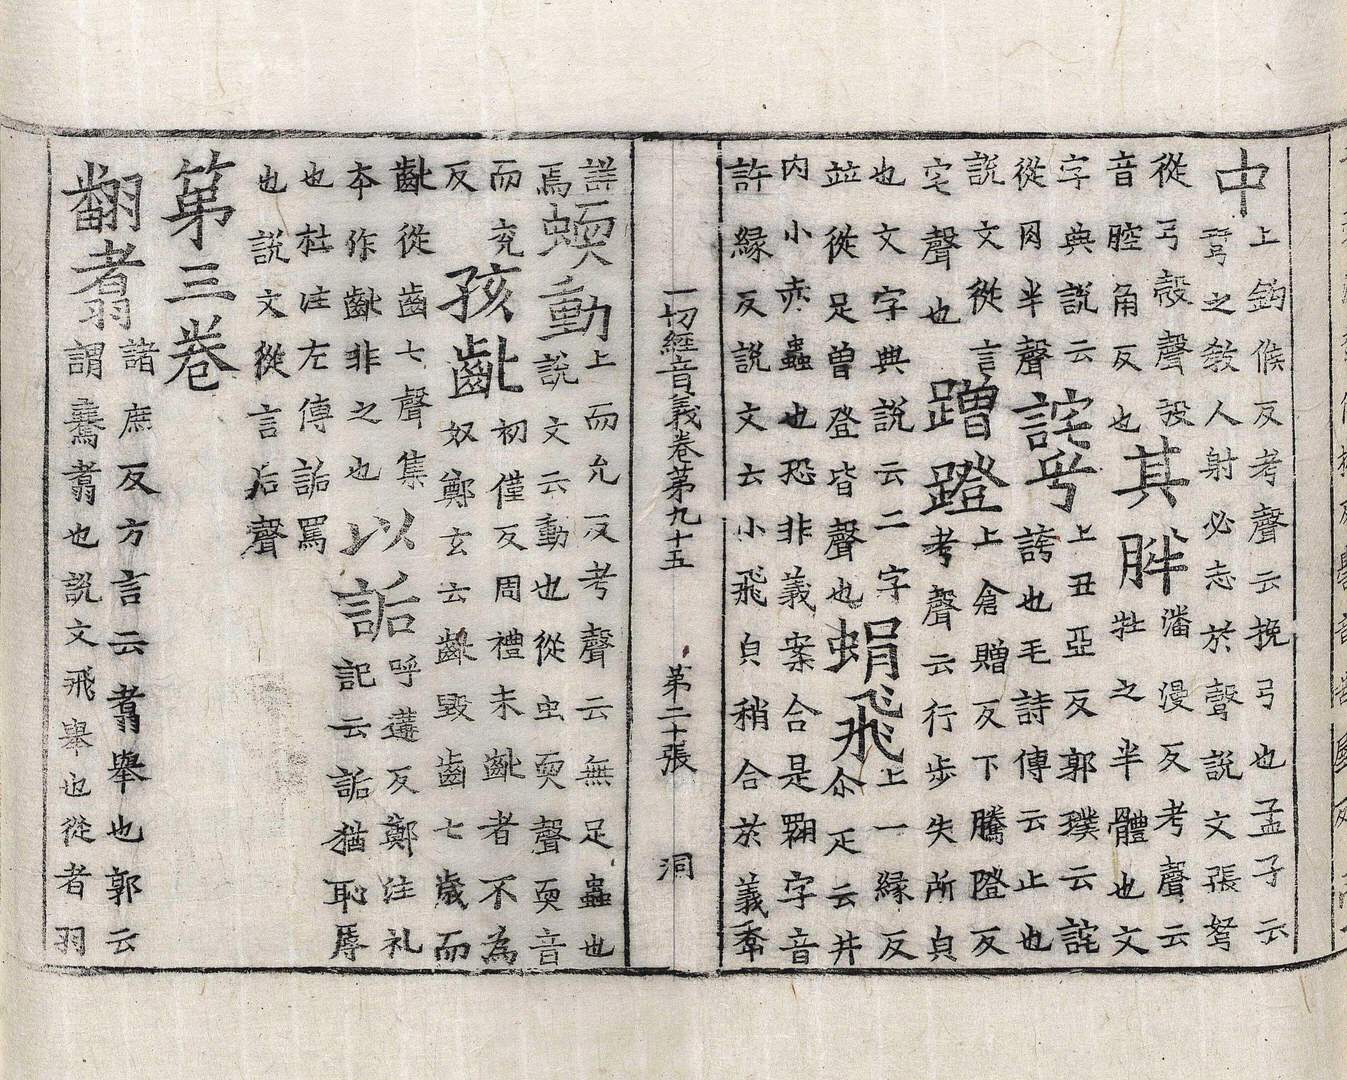 中
上鉤候反考聲云挽弓也孟子云
羿之教人射必志於彀說文張弩
從弓㱿聲設
音腔角反也
其胖
潘漫反考聲云
牲之半體也文
字典說云
從肉半聲
詫兮
上丑亞反郭璞云詫
誇也毛詩傳云止也
說文從言
宅聲也
蹭蹬
上倉贈反下騰隥反
考聲云行步失所皃
也文字典說云二字
並從足曾登皆聲也
蜎飛
上一緣反
尒疋云井
內小赤蟲也恐非義案合是翾字音
許緣反說文云小飛皃稍合於義乖
一切經音義卷第九十五 第二十張 洞
詳
焉
蝡動
上而允反考聲云無足蟲也
說文云動也從虫耎聲耎音
而兗
反
孩齔
初僅反周禮未齔者不為
奴鄭玄云齔毀齒七歲而
齔從齒七聲集
本作齔非之也
以詬
呼遘反鄭注礼
記云詬猶恥辱
也杜注左傳詬罵
也說文從言后聲
第三卷
翻翥
諸庶反方言云翥舉也郭云
謂鶱翥也說文飛舉也從者羽